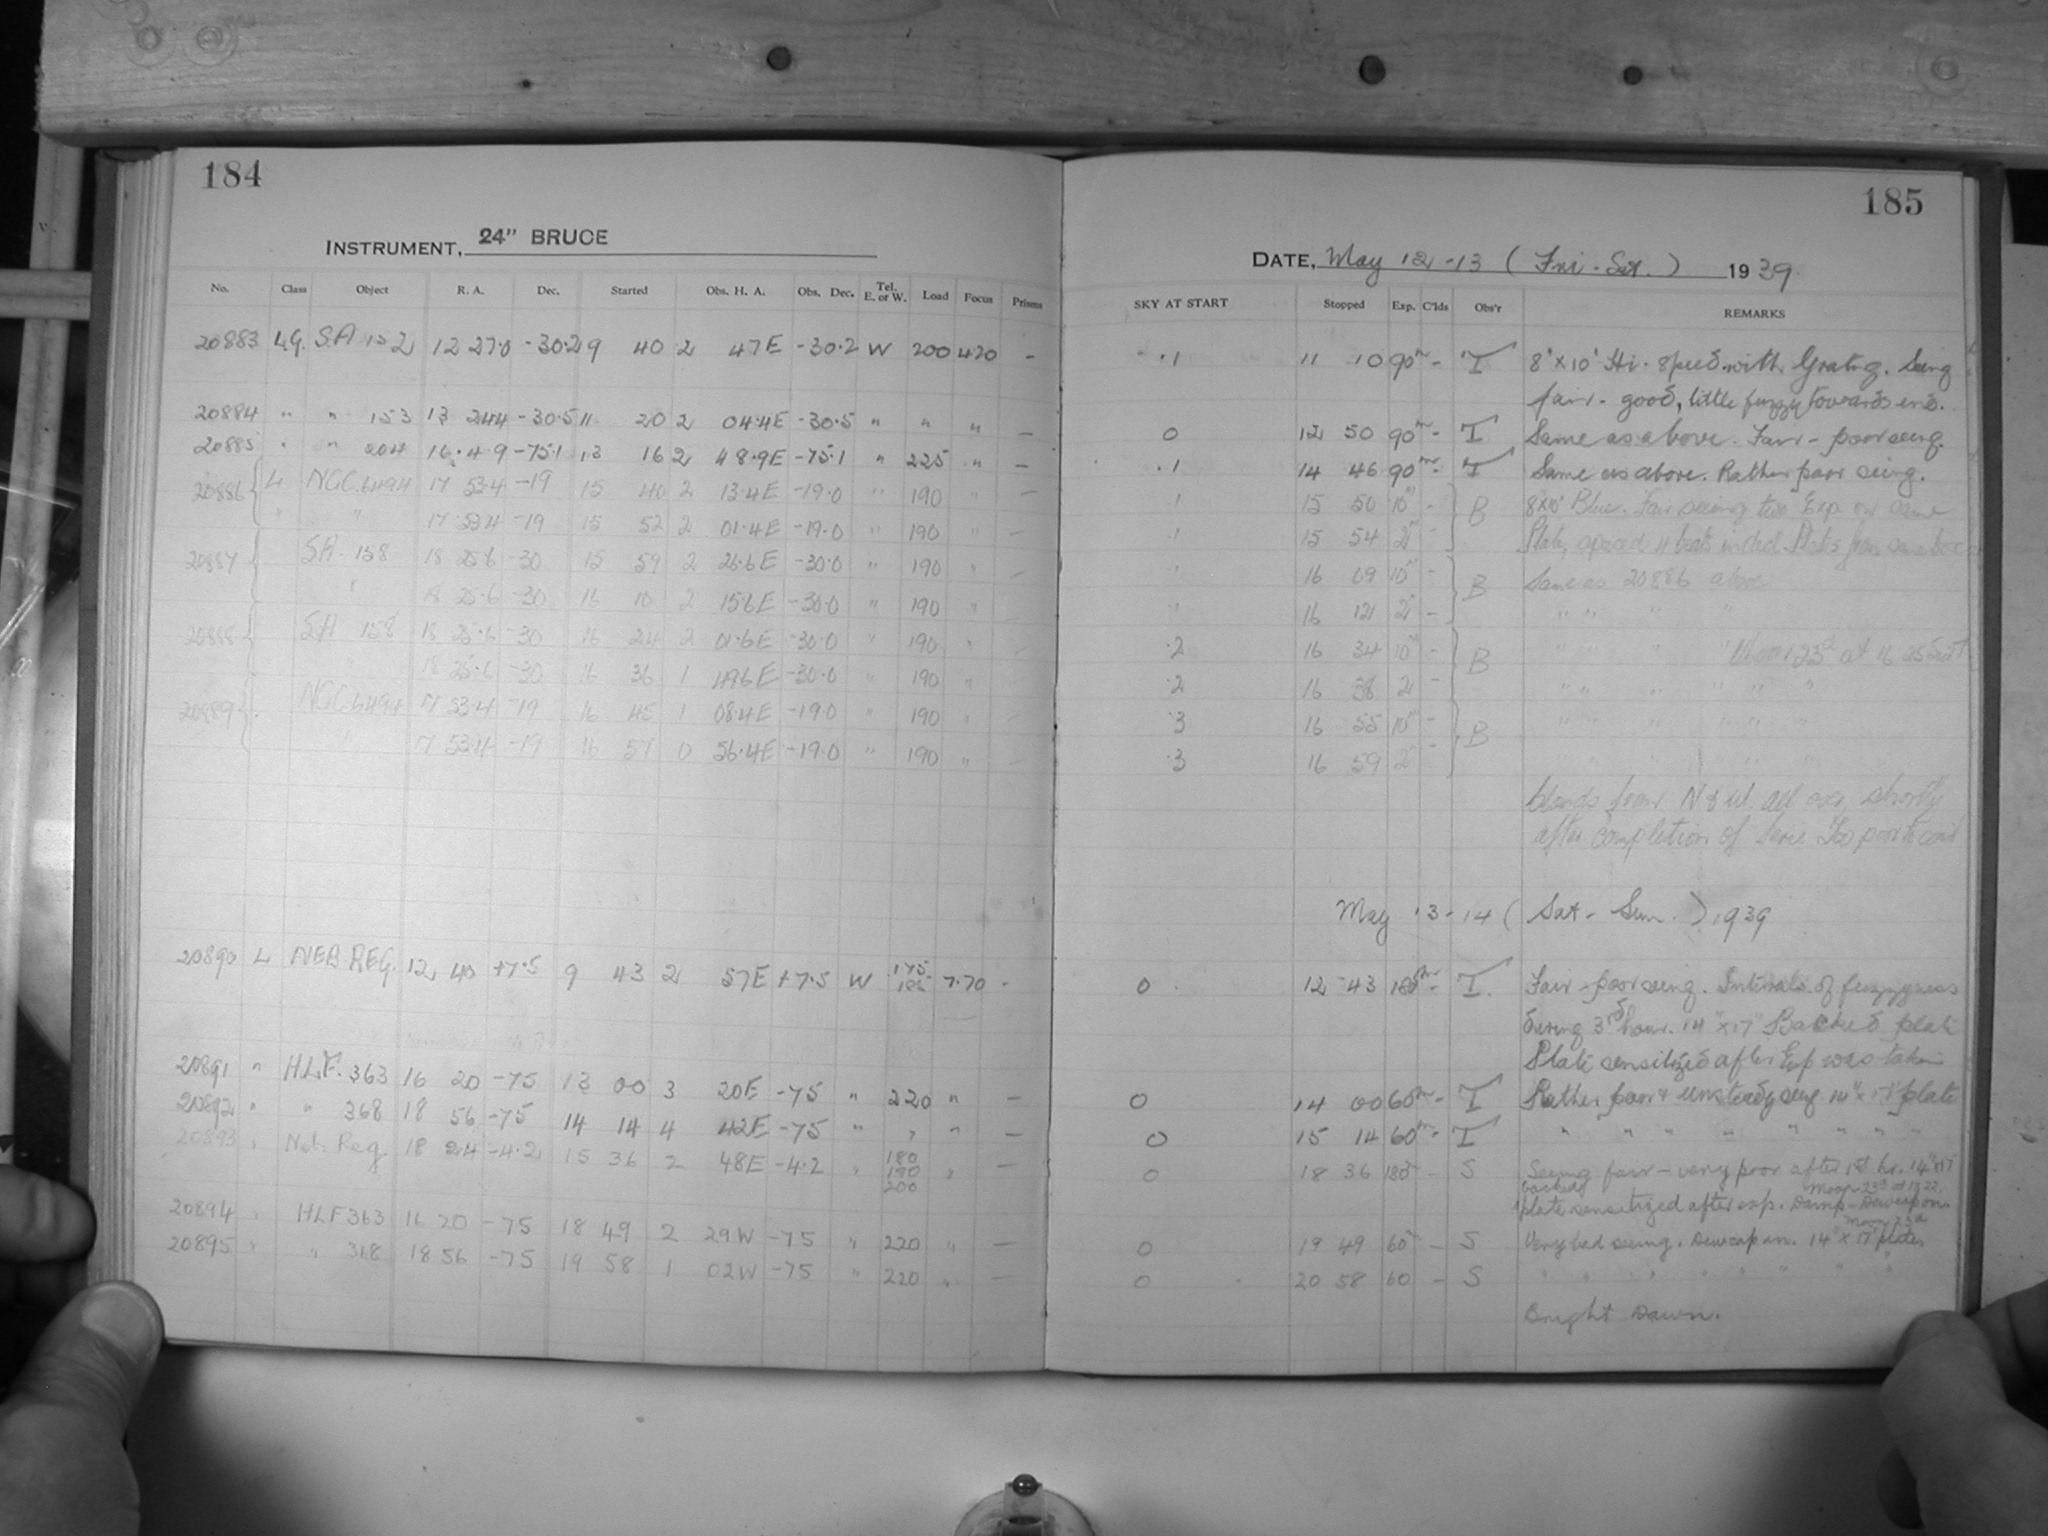 184
INSTRUMENT, 24" BRUCE
No. Class Object R. A. Dec. Started Obs. H. A. Obs. Dec. Tel. E. or W. Load Focus Prisms
20883 LG. SA 152 12 27.0 -30.2 9 40 2 47E -30.2 W 200 420 -
20884 " " 153 13 24.4 -30.5 11 20 2 04.4E -30.5 " " " -
20885 " " 204 16 4.9 -75.1 13 16 2 48.9E -75.1 " 225 " -
20886 { L NGC.6494 17 53.4 -19 15 40 2 13.4E -19.0 " 190 " -
" " 17 53.4 -19 15 52 2 01.4E -19.0 " 190 " -
20887 { SA. 158 18 25.6 -30 15 59 2 26.6E -30.0 " 190 " -
" 18 25.6 -30 16 10 2 15.6E -30.0 " 190 " -
20888 { SA 158 18 25.6 -30 16 24 2 01.6E -30.0 " 190 " -
" 18 25.6 -30 16 36 1 49.6E -30.0 " 190 " -
20889 { NGC.6494 17 53.4 -19 16 45 1 08.4E -19.0 " 190 " -
" 17 53.4 -19 16 57 0 56.4E -19.0 " 190 " -
20890 L NEB. REG. 12 40 +7.5 9 43 2 57E +7.5 W 175 7.70 -
20891 " H.L.F. 363 16 20 -75 13 00 3 20E -75 " 220 " -
20892 " " 368 18 56 -75 14 14 4 42E -75 " " " -
20893 " Neb. Reg. 18 24 -4.2 15 36 2 48E -4.2 " 180 190 200 " -
20894 " HLF 363 16 20 -75 18 49 2 29W -75 " 220 " -
20895 " " 368 18 56 -75 19 58 1 02W -75 " 220 " -
185
DATE, May 12-13 (Fri-Sat.) 1939
SKY AT START Stopped Exp. C'lds Obs'r REMARKS
.1 11 10 90m - T 8" x 10" Hi. Speed with Grating. Seeing
fair - good, little fuzzy towards end.
0 12 50 90m - T Same as above. Fair - poor seeing.
.1 14 46 90m - T Same as above. Rather poor seeing.
.1 15 50 10m - } B 8x10" Blue. Fair seeing two Exp. on same
.1 15 54 2m - Plate, spaced 4 beats in decl. Plates from same box
" 16 09 10m - } B Same as 20886 above
" 16 12 2m - " " " "
.2 16 34 10m - } B " " " " Moon 23d at 16 25 Sid T
.2 16 38 2 - " " " " " "
.3 16 55 10m - } B " " " " "
.3 16 59 2m " " " " " "
Clouds from N & W. all over, shortly
after completion of Too poor to cont
May 13-14 (Sat - Sun.) 1939
0 12 43 180m - T. Fair - poor seeing. Intervals of fuzzyness
during 3rd hour. 14" x 17" Backed plate
Plate sensitized after Exp was taken
0 14 00 60m - T Rather poor & unsteady seeing 14" x 17" plate
0 15 14 60m - T " " " " " " " "
0 18 36 180m - S Seeing fair - very poor after 1st hr. 14" x 17"
backed Moon 23d at 17 22.
plate sensitized after exp. Damp - Dewcap on.
Moon 23d
0 19 49 60m - S Very bad seeing. Dewcap on. 14" x 17" plates
0 20 58 60 - S " " " " " " " "
Bright Dawn.